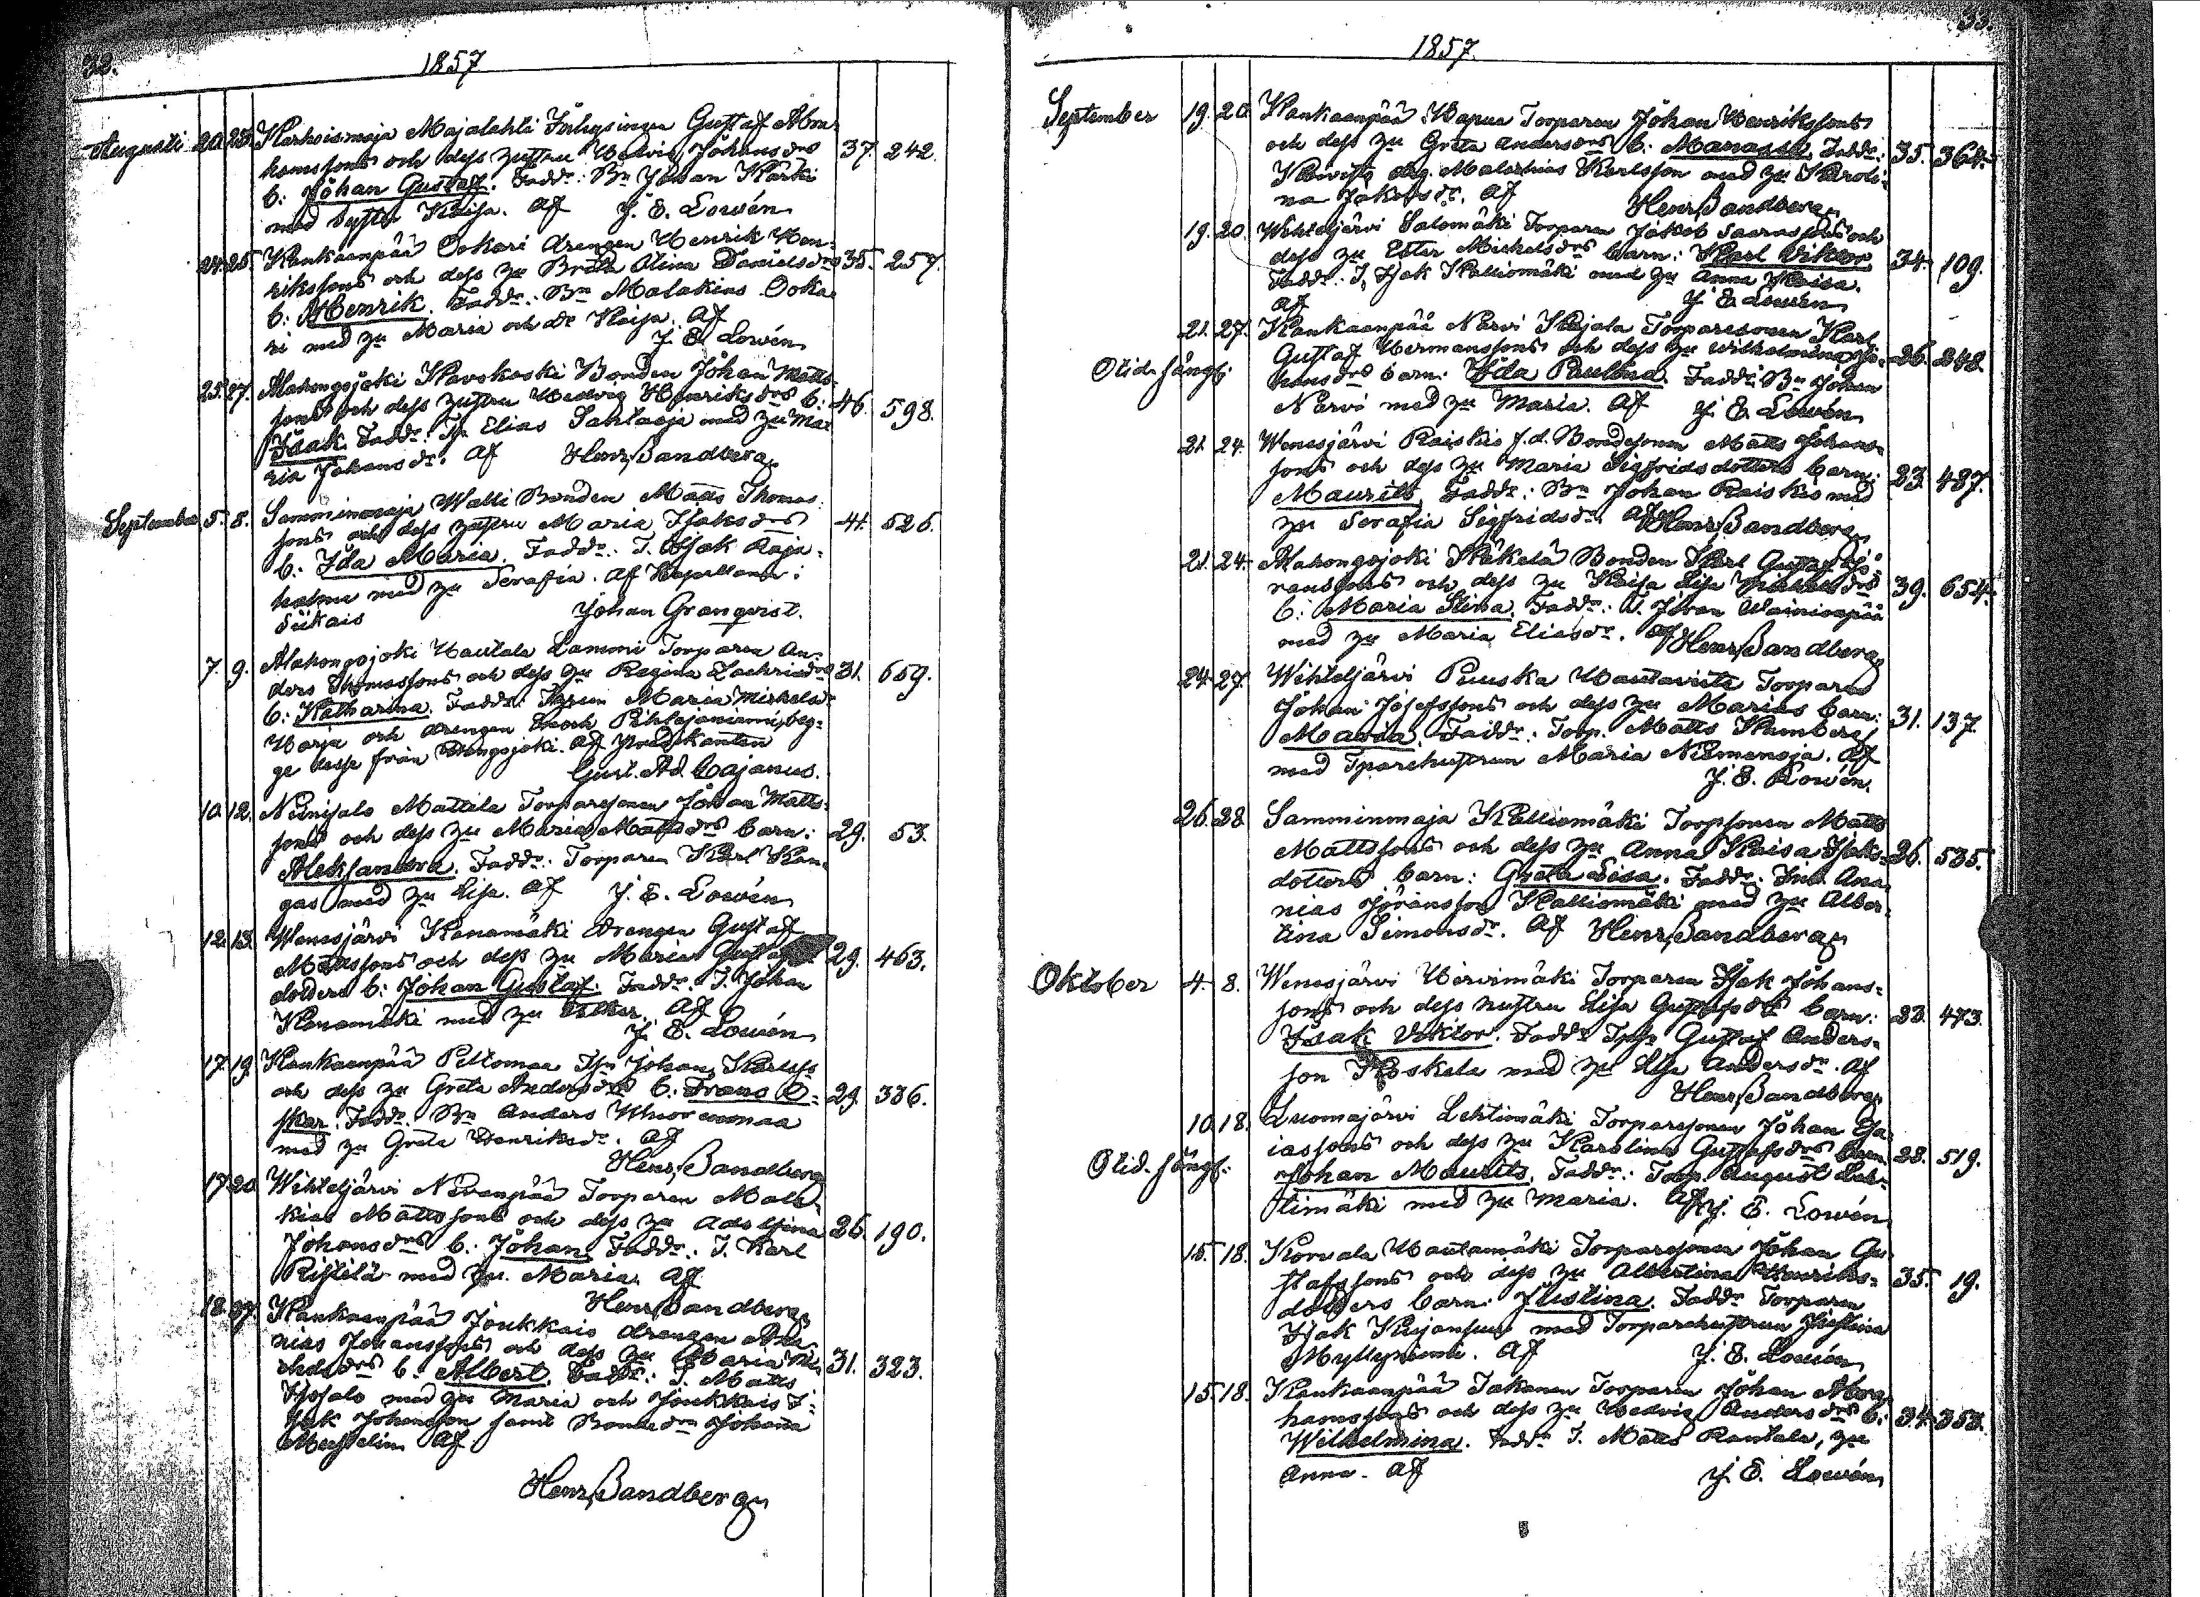 32.
1857
Augusti 20. 23. Karhoismaja Majalahti Inhysingen Gustaf Abra-
hamssons och dess hustru Hedvig Johansdrs 37. 242.
b: Johan Gustaf. Fadd: Bn Johan Karki
med syster Kaisa. Af J. E. Lowén
24. 25. Kankaanpää Ookari drengen Henrik Hen-
rikssons och dess hu Brita Stina Danielsdrs 35. 257.
b: Henrik. Fadd: Bn Malakias Ooka-
ri med hu Maria och dr Kaisa. Af
J. E. Lowén
25. 27. Alahongojoki Bonden Johan Matts-
sons och dess hustru Hedvig Henriksdrs b: 46. 598.
Isaak. Fadd: Elias Sahlaoja med hu Ma-
ria Johansdr. Af Henr. Sandberg
September 5. 8. Samminmaja Walli Bonden Matts Thomas-
sons och dess hustru Maria Isaksdrs 41. 526.
b: Ida Maria. Fadd: T. Isak Raja-
halme med hu Serafia. Af Kapellanen i
Siikais Johan Granqvist.
7. 9. Alahongojoki Hautala Lammi Torparen An-
ders Thomassons och dess hu Regina Zachrisdrs 31. 659.
b: Katharina. Fadd: Maria Mickelsdr
Harja och drengen Enoch Pihlajaniemi, beg-
ge desse från Hongojoki. Af Predikanten
Gust. Ad. Cajanus.
10. 12. Niinisalo Mattila Torparesonen Johan Matts-
sons och dess hu Maria Mattsdrs barn: 29. 53.
Aleksandra. Fadd: Torparen Karl Kan-
gas med hu Lisa. Af J. E. Lowén
12. 13. Wenesjärvi Kanamäki drengen Gustaf
Mattssons och dess hu Maria Gustafs- 29. 463.
dotters b: Johan Gustaf. Fadd: T. Johan
Kanamäki med hu Ester. Af
J. E. Lowén
17. 19. Kankaanpää Peltomaa Johan Karlss
och dess hu Greta Andersdrs b: Frans O- 29. 336.
skar. Fadd: Bn Anders Wuorenmaa
med hu Greta Henriksdr. Af
Henr. Sandberg
17. 20. Wihteljärvi Nevanpää Torparen Mala-
kias Mattssons och dess hu Adolfina 26. 190.
Johansdrs b: Johan. Fadd: T. Karl
Ristilä med hu Maria. Af
Henr. Sandberg
18. 27. Kankaanpää Joukkais drengen Ana-
nias Johanssons och dess hu Maria Mi-
chelsdrs b: Albert. Fadd: T. Matts 31. 323.
Isosalo med hu Maria och Joukkais I-
sak Johansson samt Bondedrn Johanna
Af
Henr. Sandberg
33.
1857.
September 19. 20. Kankaanpää Wapua Torparen Johan Henrikssons
och dess hu Greta Andersdrs b: Manasse. Fadd: 35. 364.
Malachias Karlsson med hu Karoli-
na Jakobsdr. Af Henr. Sandberg
19. 20. Wihteljärvi Salomäki Torparen Jakob och
dess hu Ester Mickelsdrs barn: Karl Viktor 34. 109.
Fadd: T. Isak Kalliomäki med hu Anna Kaisa.
Af J. E. Lowén
21. 27. Kankaanpää Närvi Kujala Torparesonen Karl
Gustaf Hermanssons och dess hu Wilhelmina Jo- 26. 248.
Otid. sängl: hansdrs barn: Ida Paulina. Fadd: Bn Johan
Närvi med hu Maria. Af J. E. Lowén
21. 24. Wenesjärvi Raiskio f.d. Bondesonen Matts Johans-
sons och dess hu Maria Sigfridsdotters barn: 23. 487.
Maurits. Fadd: Bn Johan Raiskio med
hu Serafia Sigfridsdr. Af Henr. Sandberg
21. 24. Alahongojoki Bonden Karl Gustaf Gö-
ranssons och dess hu Kaisa Lisa 39. 654.
b: Maria Stina. Fadd: T. Johan Wainionpää
med hu Maria Eliasdr. Af Henr. Sandberg
24. 27. Wihteljärvi Puuska Hautaviita Torparen
Johan Josefssons och dess hu Marias barn: 31. 137.
Maria. Fadd: Torp. Matts Kumberg
med Tparehustrun Maria Niemenoja. Af
J. E. Lowén.
26. 28. Samminmaja Kalliomäki Torpsonen Matts
Mattssons och dess hu Anna Kaisa Isaks- 26. 535.
dotters barn: Greta Lisa. Fadd: Inh. Ana-
nias Göransson Kalliomäki med hu Alber-
tina Simonsdr. Af Henr. Sandberg
Oktober 4. 8. Wenesjärvi Hirvimäki Torparen Isak Johans-
sons och dess hustru Lisa Gustafsdrs barn: 23. 473.
Isak Viktor. Fadd: Gustaf Anders-
son Koskela med hu Lisa Andersdr. Af
Henr. Sandberg
10. 18. Luomajärvi Lehtimäki Torparesonen Johan Esa-
iassons och dess hu Karolina Gustafsdrs barn 28. 519.
Otid. sängl: Johan Maurits. Fadd: Torp. August Leh-
timäki med hu Maria. Af J. E. Lowén
15. 18. Korvala Hautamäki Torparesonen Johan Gu-
stafssons och dess hu Albertina Henriks- 35. 19.
dotters barn: Justina. Fadd: Torparen
Isak Kujansuu med Torparehustrun Justina
Myllyniemi. Af J. E. Lowén
15. 18. Kankaanpää Takanen Torparen Johan Abra-
hamssons och dess hu Hedvig Andersdrs b: 34. 353.
Wilhelmina. Fadd: T. Matts Rantala, hu
Anna. Af J. E. Lowén